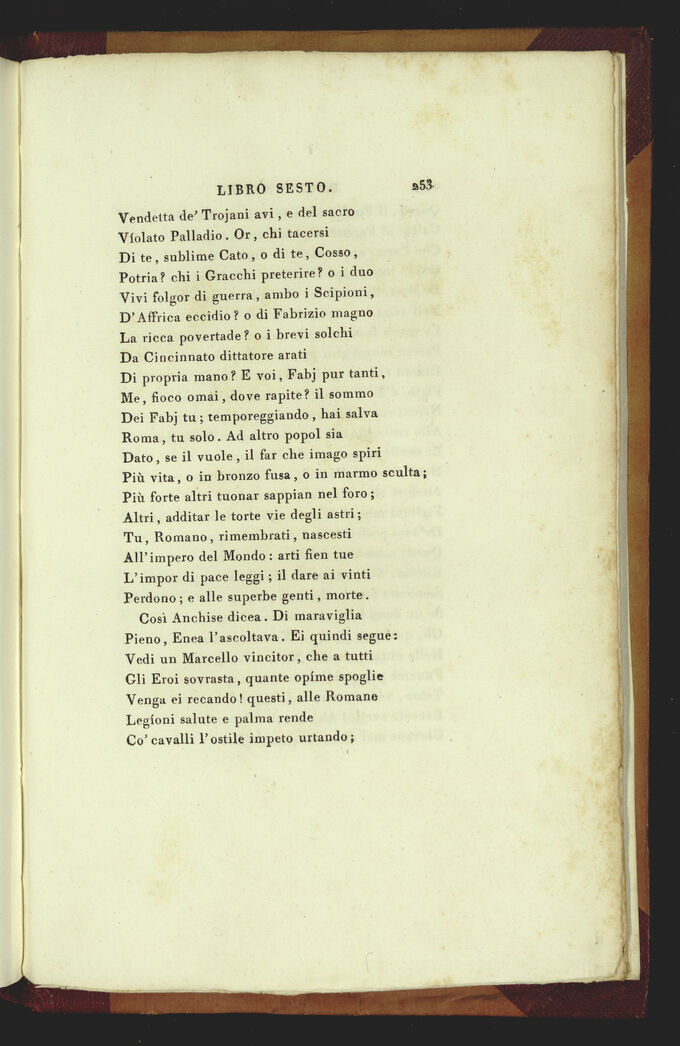 LIBRO SESTO. 253
Vendetta de' Trojani avi, e del sacro
Víolato Palladio. Or, chi tacersi
Di te, sublime Cato, o di te, Cosso,
Potria? chi i Gracchi preterire? o i duo
Vivi folgor di guerra, ambo i Scipioni,
D'Affrica eccidio? o di Fabrizio magno
La ricca povertade? o i brevi solchi
Da Cincinnato dittatore arati
Di propria mano? E voi, Fabj pur tanti,
Me, fioco omai, dove rapite? il sommo
Dei Fabj tu; temporeggiando, hai salva
Roma, tu solo. Ad altro popol sia
Dato, se il vuole, il far che imago spiri
Più vita, o in bronzo fusa, o in marmo sculta;
Più forte altri tuonar sappian nel foro;
Altri, additar le torte vie degli astri;
Tu, Romano, rimembrati, nascesti
All'impero del Mondo: arti fien tue
L'impor di pace leggi; il dare ai vinti
Perdono; e alle superbe genti, morte.
Così Anchise dicea. Di maraviglia
Pieno, Enea l'ascoltava. Ei quindi segue:
Vedi un Marcello vincitor, che a tutti
Gli Eroi sovrasta, quante opíme spoglie
Venga ei recando! questi, alle Romane
Legíoni salute e palma rende
Co' cavalli l'ostile impeto urtando;